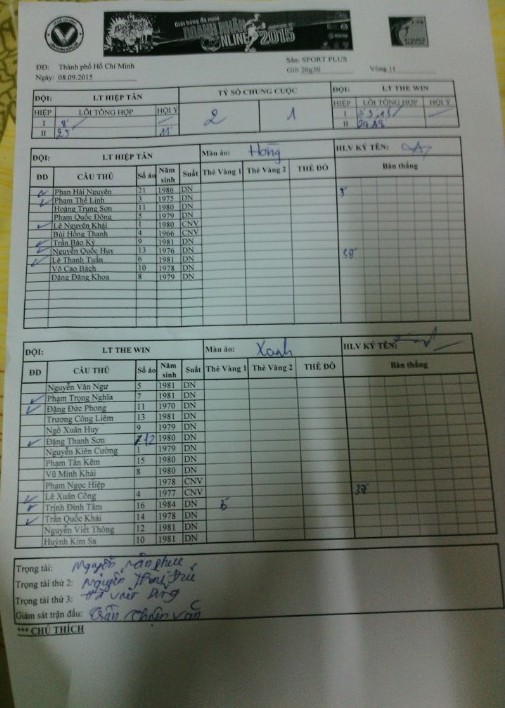 Giải bóng đá mini
DOANH NHÂN
ONLINE 2015
ĐĐ: Thành phố Hồ Chí Minh
Sân: SPORT PLUS
Ngày: 08.09.2015
Giờ 20g30 Vòng 11
ĐỘI: LT HIỆP TÂN TỶ SỐ CHUNG CUỘC ĐỘI: LT THE WIN
HIỆP LỖI TỔNG HỢP HỘI Ý 2 1 HIỆP LỖI TỔNG HỢP HỘI Ý
I I
II II
ĐỘI: LT HIỆP TÂN Màu áo: Hồng HLV KÝ TÊN:
DD CẦU THỦ Số áo Năm sinh Suất Thẻ Vàng 1 Thẻ Vàng 2 THẺ ĐỎ Bàn thắng
Phan Hải Nguyên 21 1986 DN
Phạm Thế Linh 3 1975 DN
Hoàng Trung Sơn 11 1980 DN
Phạm Quốc Đông 5 1979 DN
Lê Nguyên Khải 1 1980 CNV
Bùi Hồng Thanh 4 1966 CNV
Trần Bảo Kỳ 9 1981 DN
Nguyễn Quốc Huy 13 1976 DN
Lê Thanh Tuấn 6 1981 DN
Võ Cao Bách 10 1978 DN
Đặng Đăng Khoa 8 1979 DN
ĐỘI: LT THE WIN Màu áo: Xanh HLV KÝ TÊN:
DD CẦU THỦ Số áo Năm sinh Suất Thẻ Vàng 1 Thẻ Vàng 2 THẺ ĐỎ Bàn thắng
Nguyễn Văn Ngư 5 1981 DN
Phạm Trọng Nghĩa 7 1981 DN
Đặng Đức Phong 11 1970 DN
Trương Công Liêm 13 1981 DN
Ngô Xuân Huy 9 1979 DN
Đặng Thanh Sơn 1980 DN
Nguyễn Kiên Cường 1 1979 DN
Phạm Tấn Kềm 15 1980 DN
Vũ Minh Khải 8 1980 DN
Phạm Ngọc Hiệp 1978 CNV
Lê Xuân Công 4 1977 CNV 38'
Trịnh Đình Tâm 16 1984 DN 5
Trần Quốc Khải 14 1978 DN
Nguyễn Viết Thông 12 1981 DN
Huỳnh Kim Sa 10 1981 DN
Trọng tài: Nguyễn
Trọng tài thứ 2: Nguyễn
Trọng tài thứ 3:
Giám sát trận đấu: Trần
*** CHÚ THÍCH